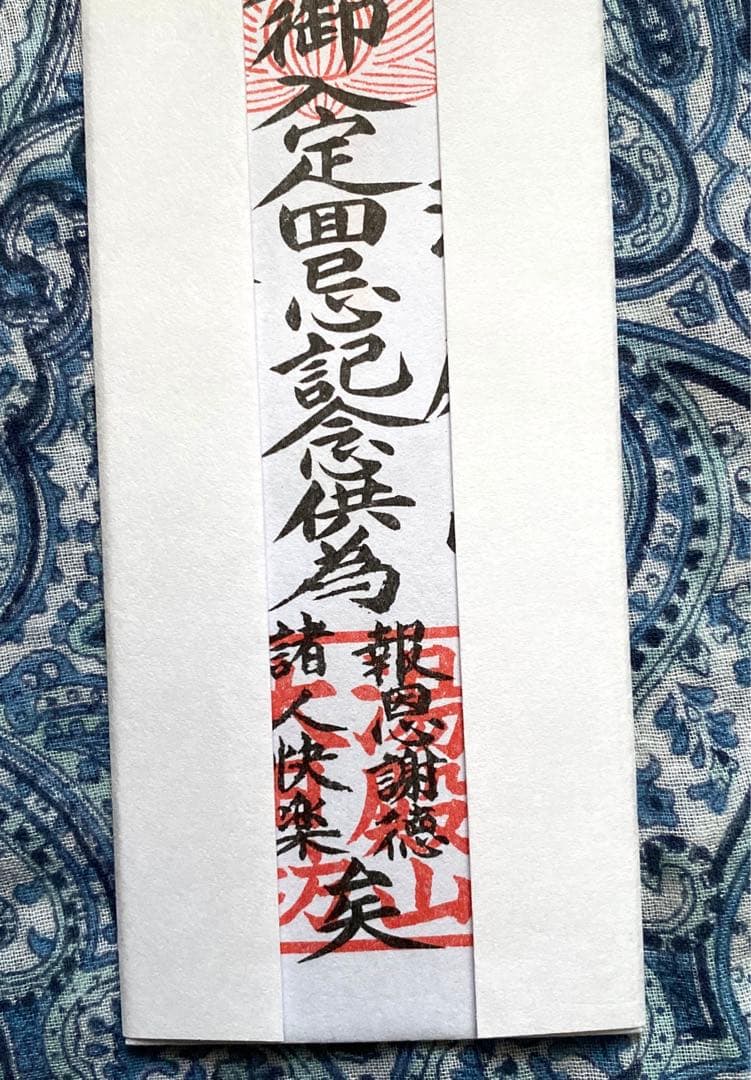 御入定回忌記念供為
報恩謝徳
諸人快楽
矣
湯殿山